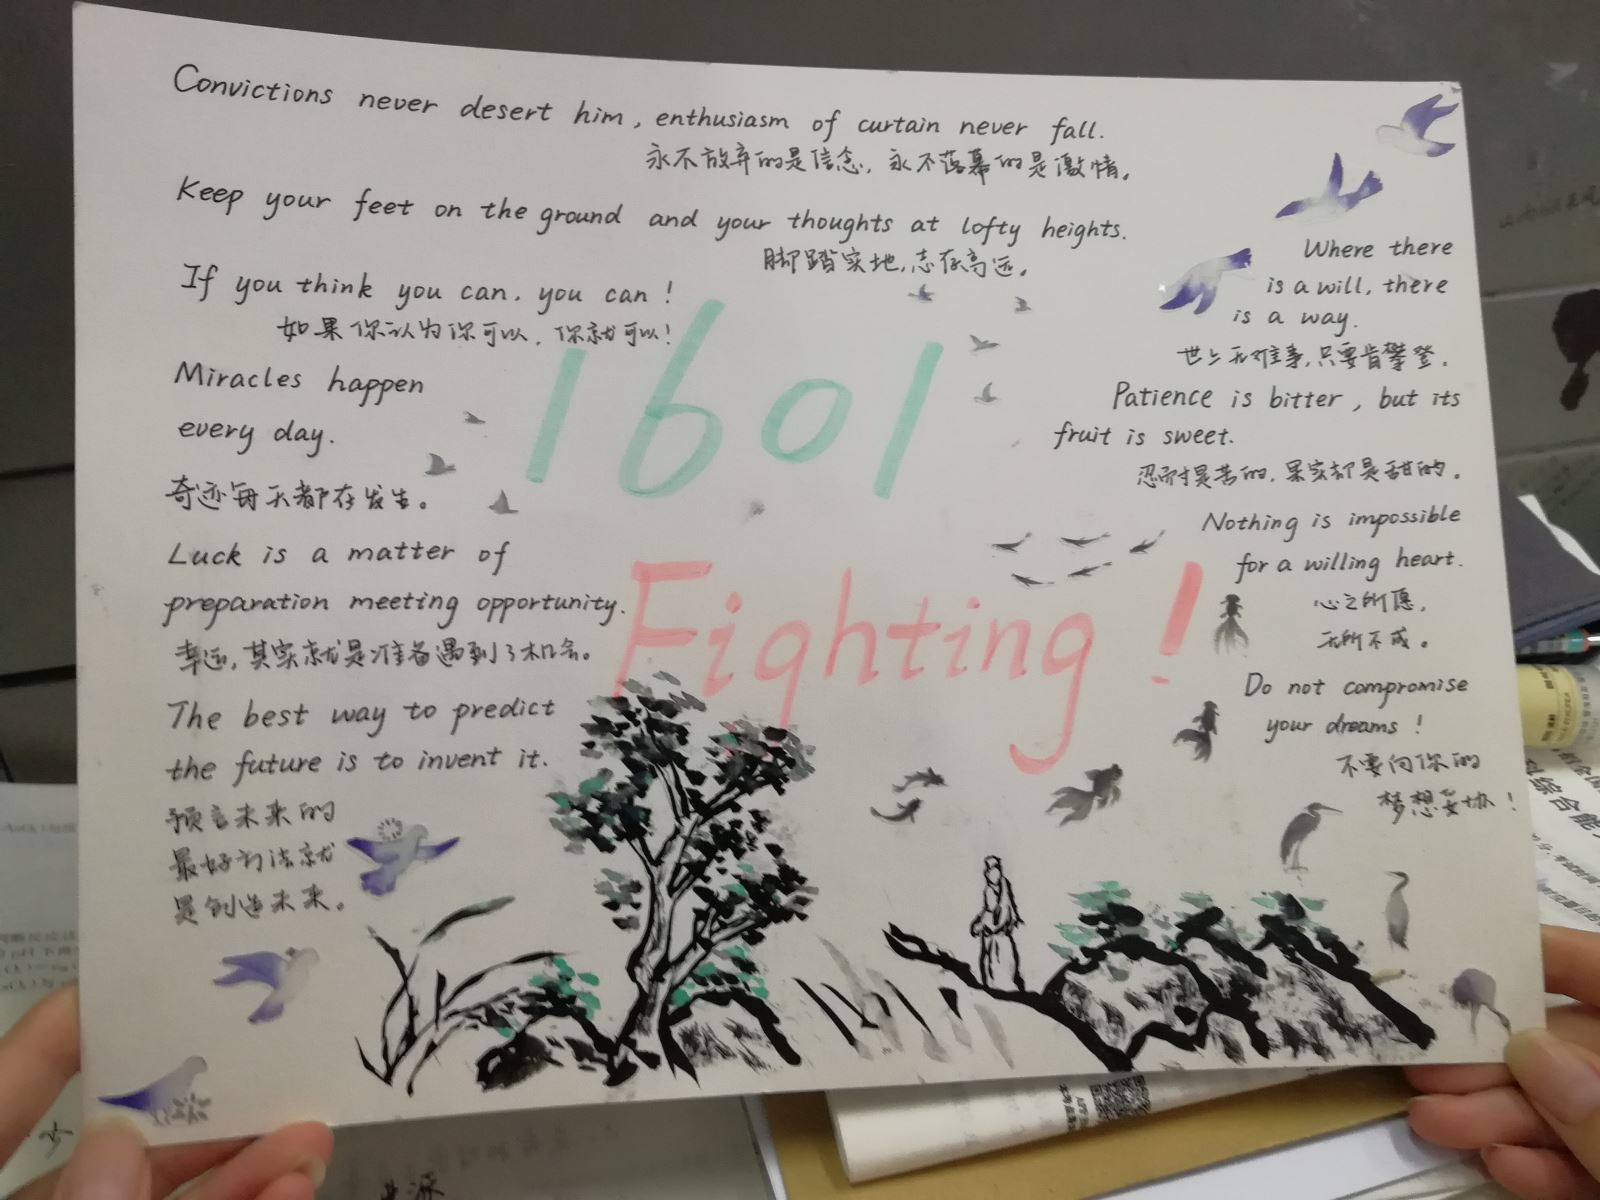 Convictions never desert him, enthusiasm of curtain never fall.
永不放弃的是信念，永不落幕的是激情。
Keep your feet on the ground and your thoughts at lofty heights.
脚踏实地，志存高远。
If you think you can, you can!
如果你认为你可以，你就可以!
Miracles happen
every day.
奇迹每天都在发生。
Luck is a matter of
preparation meeting opportunity.
幸运，其实就是准备遇到了机会。
The best way to predict
the future is to invent it.
预言未来的
最好方法就
是创造未来。
1601
Fighting!
Where there
is a will, there
is a way.
世上无难事，只要肯攀登。
Patience is bitter, but its
fruit is sweet.
忍耐是苦的，果实却是甜的。
Nothing is impossible
for a willing heart.
心之所愿，
无所不成。
Do not compromise
your dreams!
不要向你的
梦想妥协!